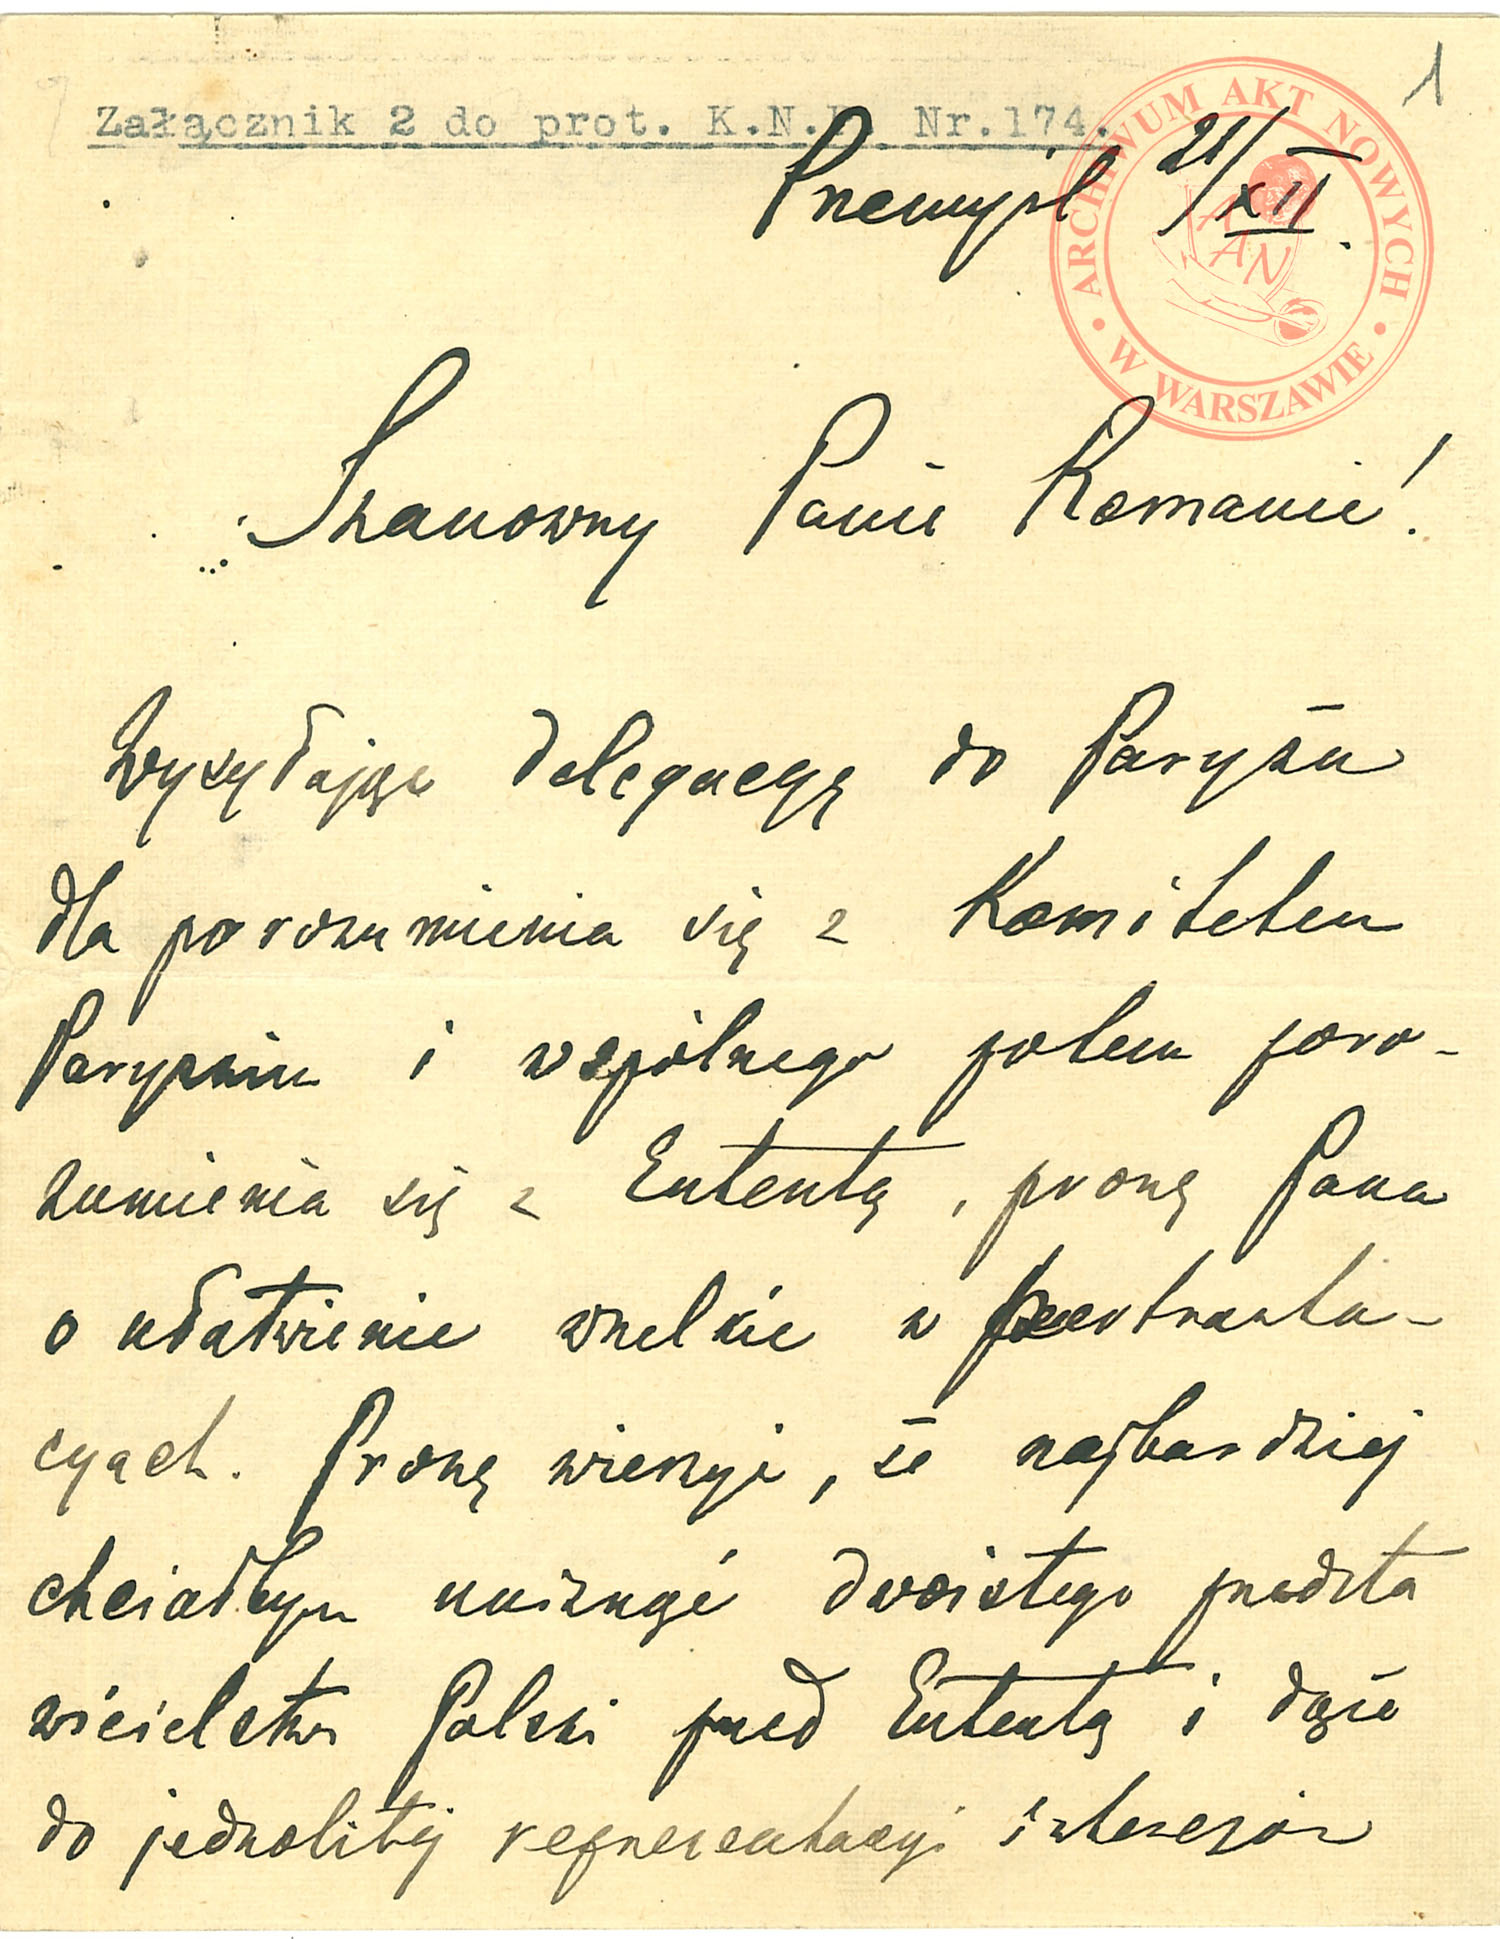 1
Załącznik 2 do prot. K.N.P. Nr.174.
ARCHIWUM AKT NOWYCH • W WARSZAWIE •
AAN
Przemyśl 21/XII.
Szanowny Panie Romanie!
Wysyłając delegacyę do Paryża
dla porozumienia się z Komitetem
Paryskim i wspólnego potem poro-
zumienia się z Ententą, proszę Pana
o ułatwienie wszelkie w pertrakta-
cyach. Proszę wierzyć, że najbardziej
chciałbym uniknąć dwoistego przedsta
wicielstwa Polski przed Ententą i dążę
do jednolitej reprezentacyi interesów